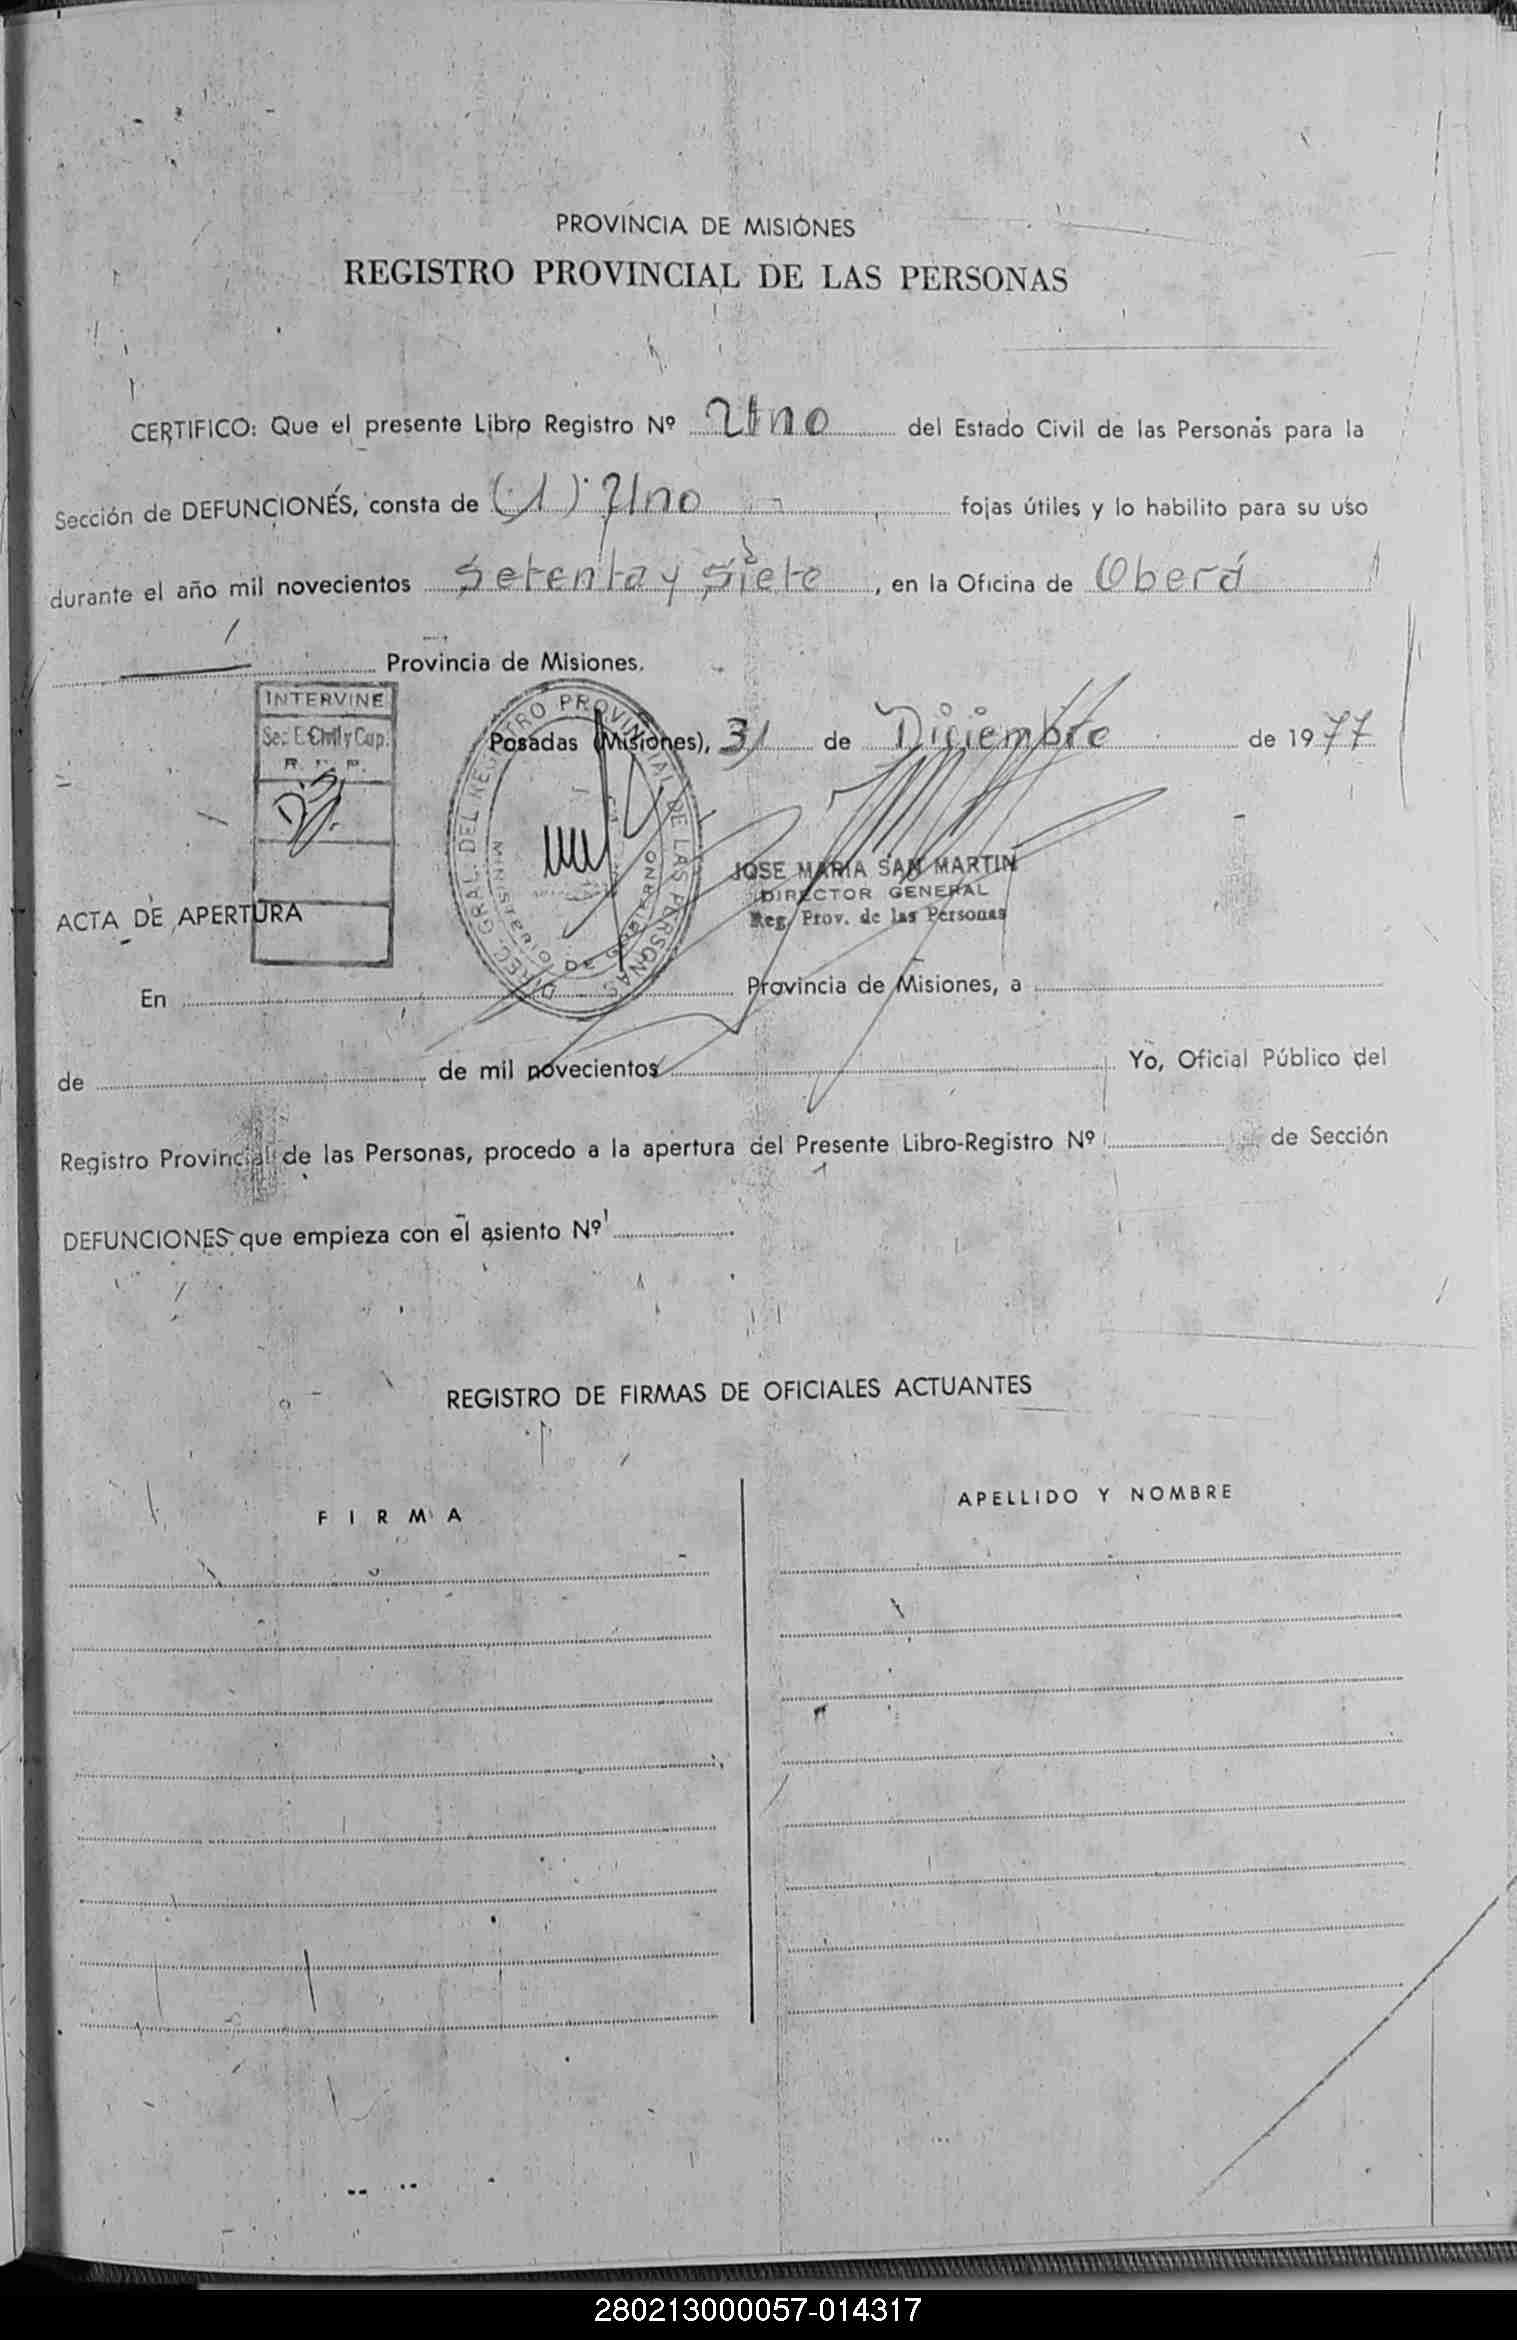 PROVINCIA DE MISIONES
REGISTRO PROVINCIAL DE LAS PERSONAS
CERTIFICO: Que el presente Libro Registro Nº Uno del Estado Civil de las Personas para la
Sección de DEFUNCIONES, consta de (1) Uno fojas útiles y lo habilito para su uso
durante el año mil novecientos Setenta y Siete, en la Oficina de Oberá
Provincia de Misiones.
INTERVINE
Sec. E. Civil y Cap.
R. P. P.
DIREC. GRAL. DEL REGISTRO PROVINCIAL DE LAS PERSONAS
MINISTERIO DE GOBIERNO
Posadas (Misiones), 31 de Diciembre de 1977
JOSE MARIA SAN MARTIN
DIRECTOR GENERAL
Reg. Prov. de las Personas
ACTA DE APERTURA
En Provincia de Misiones, a
de de mil novecientos Yo, Oficial Público del
Registro Provincial de las Personas, procedo a la apertura del Presente Libro-Registro Nº de Sección
DEFUNCIONES que empieza con el asiento Nº
REGISTRO DE FIRMAS DE OFICIALES ACTUANTES
FIRMA APELLIDO Y NOMBRE
280213000057-014317